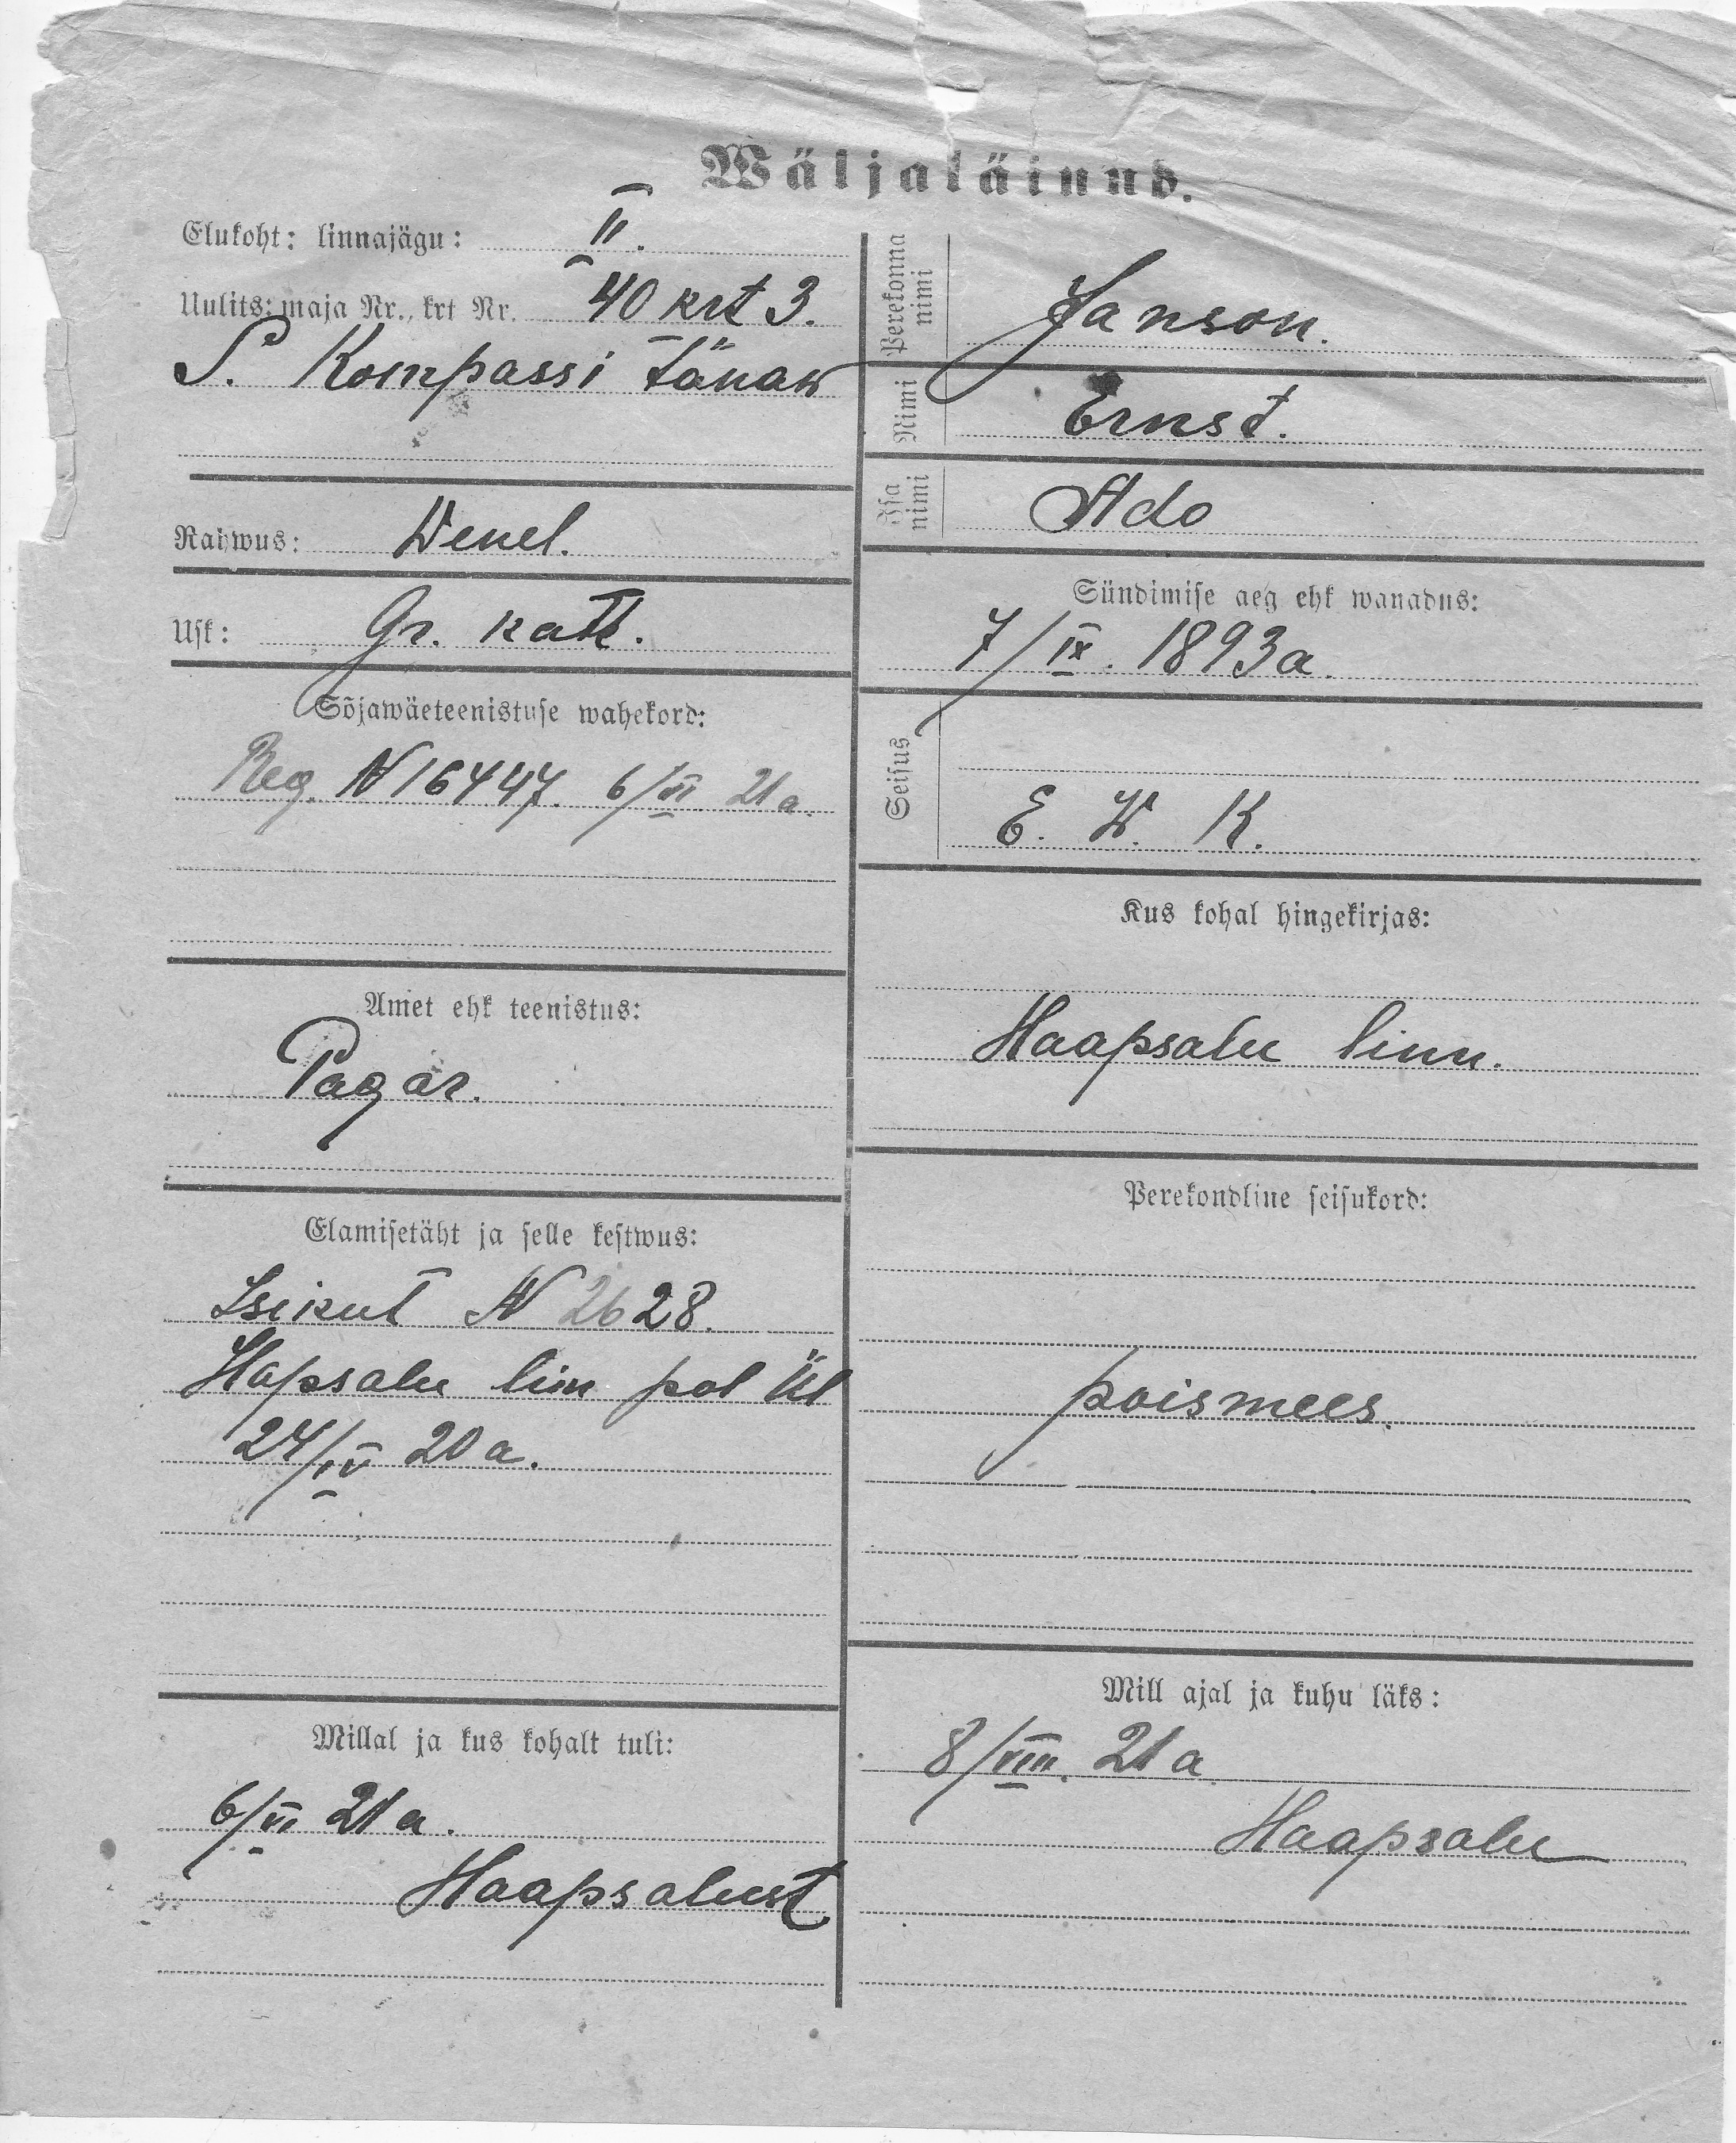 Wäljaläinud.
Elukoht: linnajägu: II.
Uulits: maja Nr., krt Nr. 40 krt 3.
S. Kompassi tänaw
Rahwus: Wenel.
Usk: Gr. katl.
Sõjawäeteenistuse wahekord:
Reg. N 16447. 6/VI 21 a.
Amet ehk teenistus:
Pagar.
Elamisetäht ja selle kestwus:
Isikut N 2628.
Hapsalu linn pol ül
24/IV 20 a.
Millal ja kus kohalt tuli:
6/VI 21 a.
Haapsalust
Perekonna nimi Janson.
Nimi Ernst.
Isa nimi Ado
Sündimise aeg ehk wanadus:
7/IX. 1893 a.
Seisus
E. W. K.
Kus kohal hingekirjas:
Haapsalu linn.
Perekondline seisukord:
poismees.
Mill ajal ja kuhu läks:
8/VIII. 21 a
Haapsalu